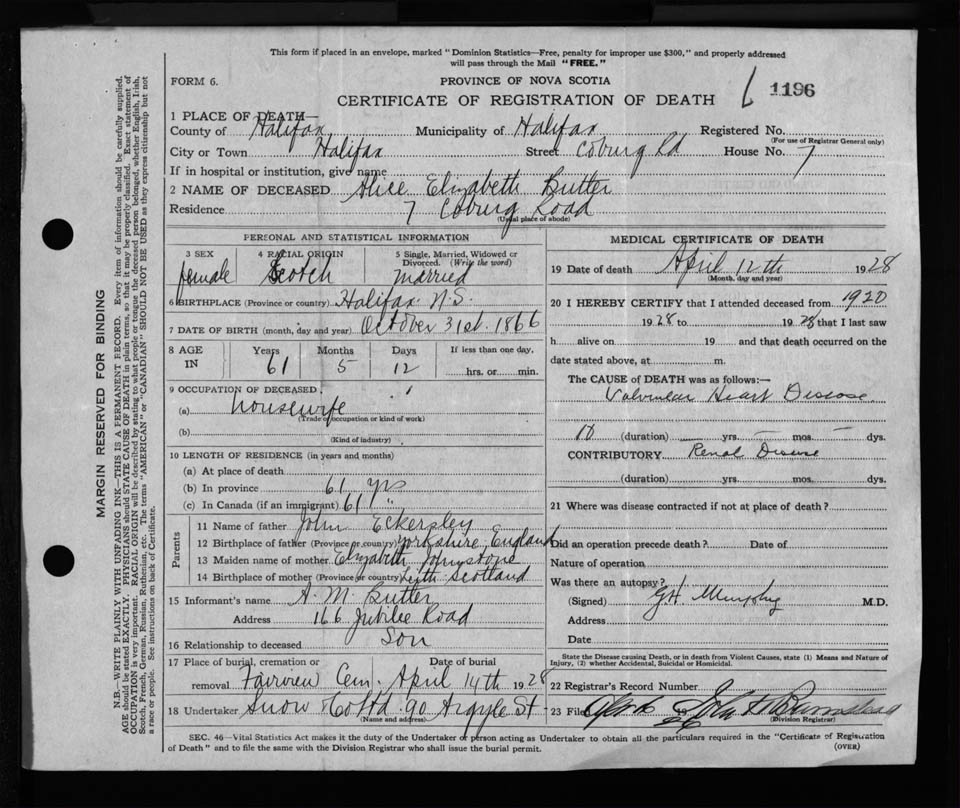 This form if placed in an envelope, marked "Dominion Statistics—Free, penalty for improper use $300," and properly addressed
will pass through the Mail "FREE."
FORM 6.
PROVINCE OF NOVA SCOTIA
CERTIFICATE OF REGISTRATION OF DEATH
1196
MARGIN RESERVED FOR BINDING
N.B.—WRITE PLAINLY WITH UNFADING INK—THIS IS A PERMANENT RECORD. Every item of information should be carefully supplied.
AGE should be stated EXACTLY. PHYSICIANS should STATE CAUSE OF DEATH in plain terms, so that it may be properly classified. Exact statement of
OCCUPATION is very important. RACIAL ORIGIN will be described by stating to what people or tongue the deceased person belonged, whether English, Irish,
Scotch, French, German, Russian, Ruthenian, etc. The terms "AMERICAN" or "CANADIAN" SHOULD NOT BE USED as they express citizenship but not
a race or people. See instructions on back of Certificate.
1 PLACE OF DEATH—
County of Halifax Municipality of Halifax Registered No.
(For use of Registrar General only)
City or Town Halifax Street Coburg Rd House No. 7
If in hospital or institution, give name
2 NAME OF DECEASED Alice Elizabeth Butler
Residence 7 Coburg Road
(Usual place of abode)
PERSONAL AND STATISTICAL INFORMATION
3 SEX 4 RACIAL ORIGIN 5 Single, Married, Widowed or Divorced. (Write the word)
female Scotch married
6 BIRTHPLACE (Province or country) Halifax N.S.
7 DATE OF BIRTH (month, day and year) October 31st. 1866
8 AGE IN Years Months Days If less than one day,
61 5 12 hrs. or min.
9 OCCUPATION OF DECEASED
(a) housewife
(Trade occupation or kind of work)
(b)
(Kind of industry)
10 LENGTH OF RESIDENCE (in years and months)
(a) At place of death
(b) In province 61 yrs
(c) In Canada (if an immigrant) 61 "
Parents
11 Name of father John Eckersley
12 Birthplace of father (Province or country) Yorkshire England
13 Maiden name of mother Elizabeth Johnstone
14 Birthplace of mother (Province or country) Leith Scotland
15 Informant's name A. M. Butler
Address 166 Jubilee Road
16 Relationship to deceased Son
17 Place of burial, cremation or removal Date of burial
Fairview Cem. April 14th 1928
18 Undertaker Snow & Co Ltd 90 Argyle St
(Name and address)
MEDICAL CERTIFICATE OF DEATH
19 Date of death April 12th 1928
(Month, day and year)
20 I HEREBY CERTIFY that I attended deceased from 1920
1928 to 1928 that I last saw
h alive on 19 and that death occurred on the
date stated above, at m.
The CAUSE OF DEATH was as follows:—
Valvular Heart Disease
10 (duration) yrs. — mos. — dys.
CONTRIBUTORY Renal Disease
(duration) yrs. mos. dys.
21 Where was disease contracted if not at place of death?
Did an operation precede death? Date of
Nature of operation
Was there an autopsy?
(Signed) G H Murphy M.D.
Address
Date
State the Disease causing Death, or in death from Violent Causes, state (1) Means and Nature of
Injury, (2) whether Accidental, Suicidal or Homicidal.
22 Registrar's Record Number
23 Filed
(Division Registrar)
SEC. 46—Vital Statistics Act makes it the duty of the Undertaker or person acting as Undertaker to obtain all the particulars required in the "Certificate of Registration
of Death" and to file the same with the Division Registrar who shall issue the burial permit.
(OVER)